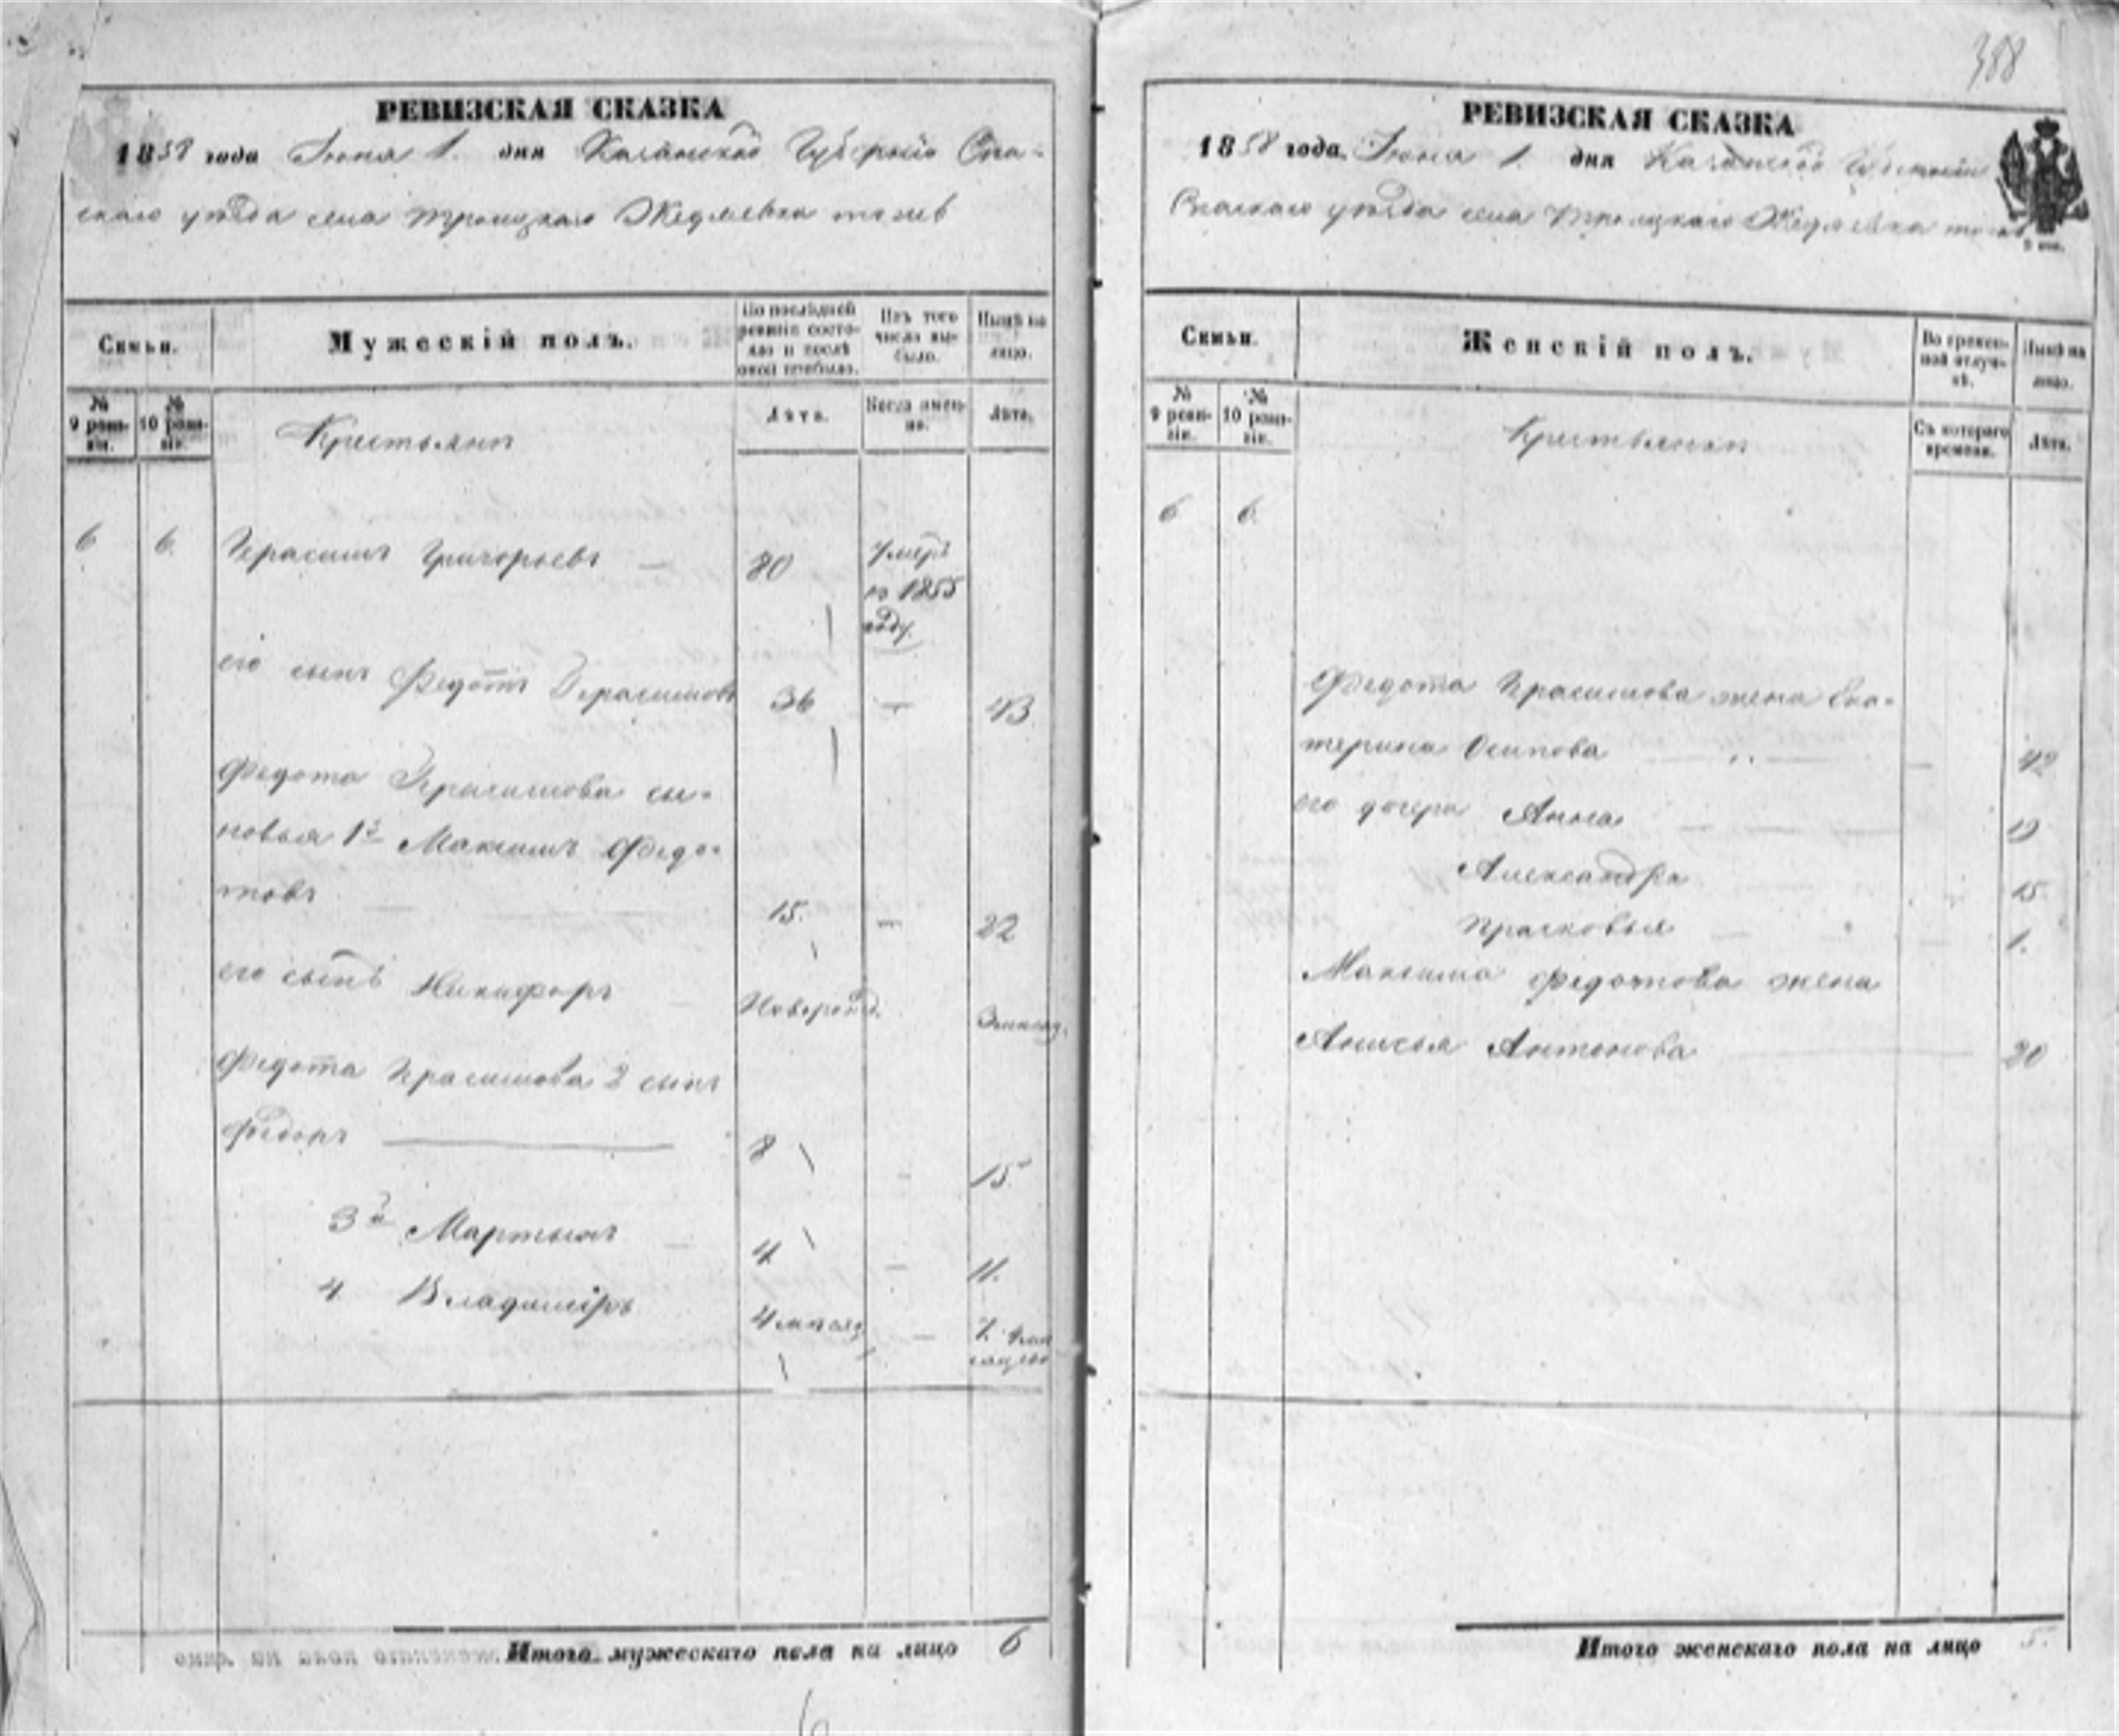 388
РЕВИЗСКАЯ СКАЗКА
1858 года Іюня 1. дня Казанской Губерніи Спа-
скаго уѣзда села Троицкаго Жедяевка тожъ
Семьи.
Мужескій полъ.
По послѣдней ревизіи состояло и послѣ оной прибыло.
Изъ того числа выбыло.
Нынѣ на лицо.
№ 9 ревизіи.
№ 10 ревизіи.
Крестьяне
Лѣта.
Когда именно.
Лѣта.
6 6. Герасимъ Григорьевъ — 80 Умеръ
въ 1855
году.
его сынъ Федотъ Герасимовъ 36 — 43
Федота Герасимова сы-
новья 1й Максимъ Федо-
товъ — 15. — 22
его сынъ Никифоръ — Новорожд.
Федота Герасимова 2 сынъ
Федоръ — 8 — 15.
3й Мартынъ — 4 — 11.
4 Владиміръ 4 мѣсяц — 7.
Итого мужескаго пола на лицо 6
6
РЕВИЗСКАЯ СКАЗКА
1858 года. Іюня 1. дня Казанской Губерніи
Спаскаго уѣзда села Троицкаго Жедяевка тожъ
Семьи.
Женскій полъ.
Во временной отлучкѣ.
Нынѣ на лицо.
№ 9 ревизіи.
№ 10 ревизіи.
Крестьянки
Съ котораго времени.
Лѣта.
6 6.
Федота Герасимова жена Ека-
терина Осипова — 42
его дочери Анна — 19
Александра 15.
Прасковья — 1.
Максима Федотова жена
Анисья Антонова — 20
Итого женскаго пола на лицо 5.